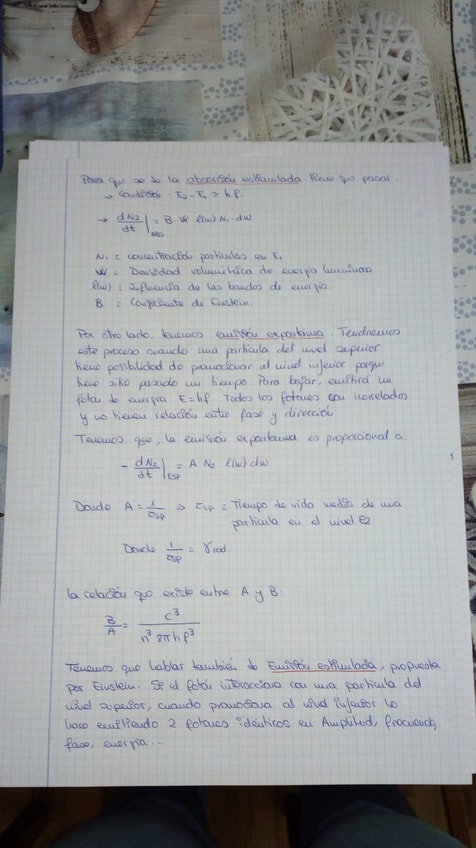 Para que se de la absorción estimulada tiene que pasar.
→ Condición: E₂ - E₁ ≈ hf.
→ dN₂/dt |ABS = B W l(ω) N₁ dω
N₁ = concentración partículas en E₁
W = Densidad volumétrica de energía luminosa
l(ω) = Influencia de las bandas de energía.
B = Coeficiente de Einstein.
Por otro lado, tenemos emisión espontánea. Tendremos
este proceso cuando una partícula del nivel superior
tiene posibilidad de promocionar al nivel inferior porque
tiene sitio pasado un tiempo. Para bajar, emitirá un
fotón de energía E=hf. Todos los fotones son incorrelados
y no tienen relación entre fase y dirección
Tenemos que, la emisión espontánea es proporcional a
- dN₂/dt |ESP = A N₂ l(ω) dω
Donde A = 1/τsp ⇒ τsp = Tiempo de vida medio de una
partícula en el nivel E2
Donde 1/τsp = γrad
La relación que existe entre A y B:
B/A = c³ / n³ 8πhf³
Tenemos que hablar también de Emisión estimulada, propuesta
por Einstein. Si el fotón interacciona con una partícula del
nivel superior, cuando promociona al nivel inferior lo
hace emitiendo 2 fotones idénticos en Amplitud, frecuencia,
fase, energía...